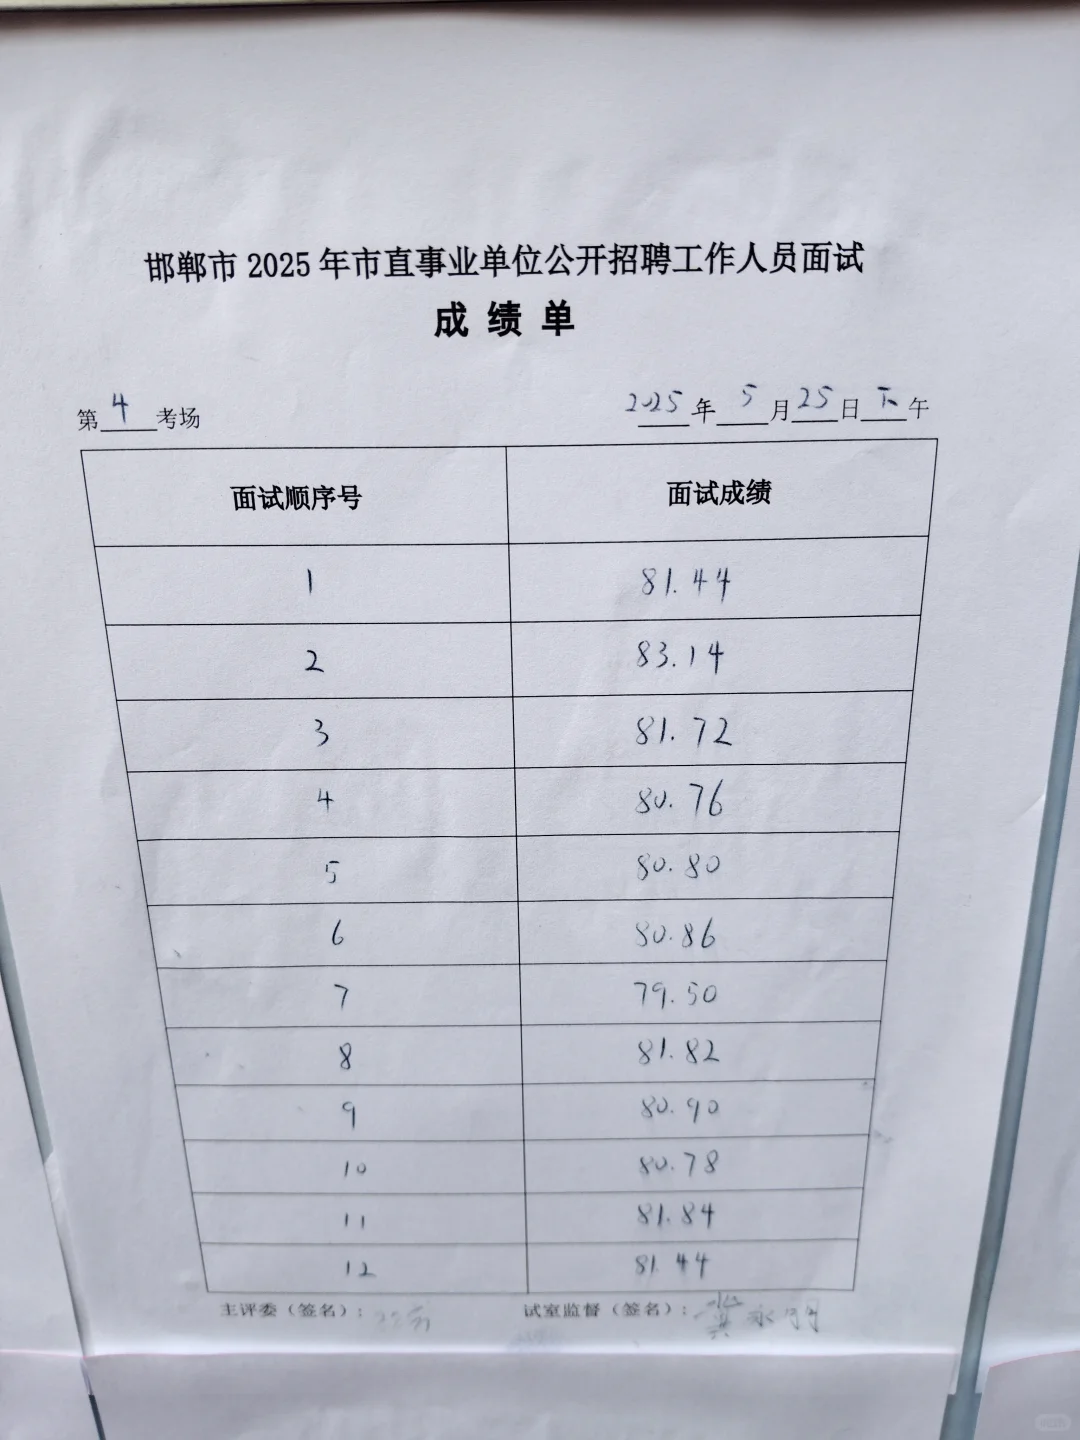 邯郸市 2025 年市直事业单位公开招聘工作人员面试
成绩单
第 4 考场 2025 年 5 月 25 日 下 午
面试顺序号 面试成绩
1 81.44
2 83.14
3 81.72
4 80.76
5 80.80
6 80.86
7 79.50
8 81.82
9 80.90
10 80.78
11 81.84
12 81.44
主评委（签名）： 试室监督（签名）：